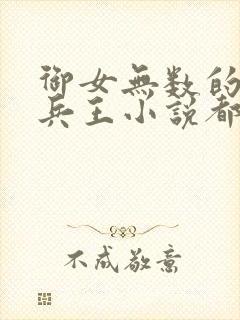 御女無数的
兵王小説都
不成敬意